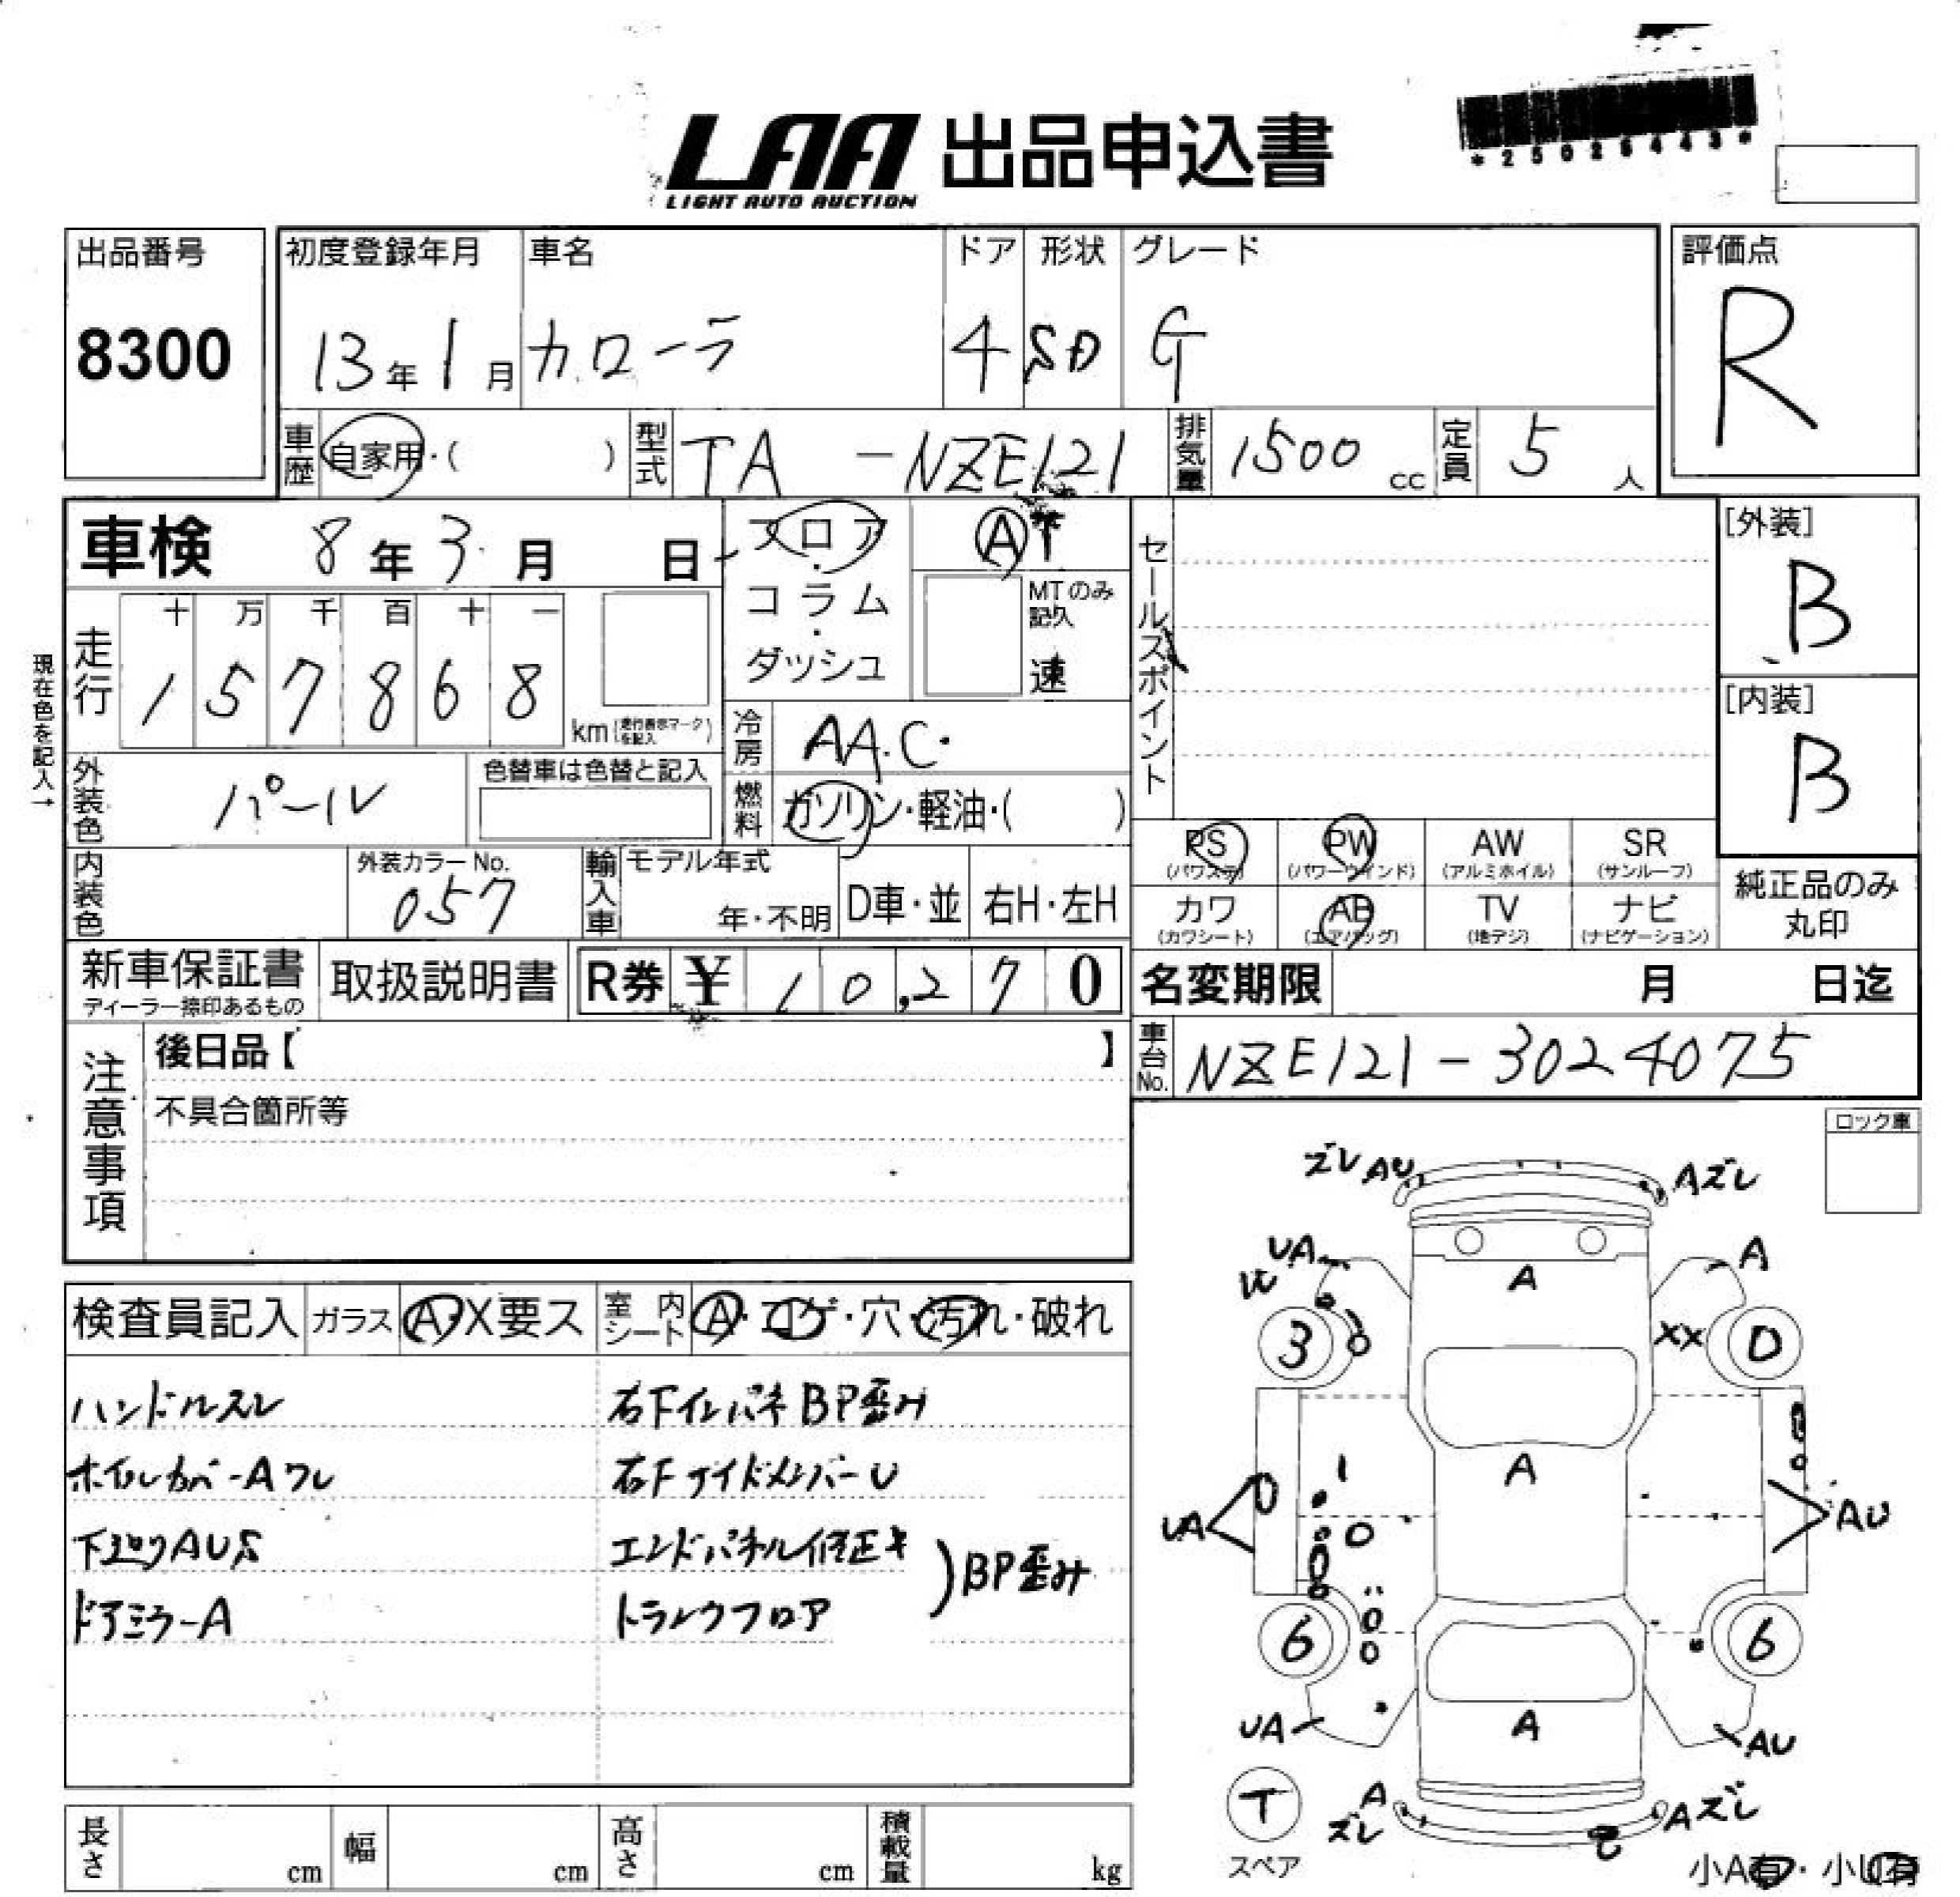 LAA 出品申込書
LIGHT AUTO AUCTION
*25025443*
出品番号
8300
初度登録年月
13年1月
車名
カローラ
ドア
4
形状
SD
グレード
G
評価点
R
車歴
自家用・( )
型式
TA-NZE121
排気量
1500cc
定員
5人
車検 8年3月 日
フロア・コラム・ダッシュ
AT
MTのみ記入
速
セールスポイント
[外装]
B
[内装]
B
現在色を記入→
走行
十 万 千 百 十 一
1 5 7 8 6 8
km(走行表示マークを記入)
冷房
AAC
燃料
ガソリン・軽油・( )
外装色
パール
色替車は色替と記入
内装色
外装カラーNo.
057
輸入車
モデル年式
年・不明
D車・並
右H・左H
PS
(パワステ)
PW
(パワーウインド)
AW
(アルミホイル)
SR
(サンルーフ)
カワ
(カワシート)
AB
(エアバッグ)
TV
(地デジ)
ナビ
(ナビゲーション)
純正品のみ
丸印
新車保証書
ディーラー捺印あるもの
取扱説明書
R券 ¥10,270
名変期限 月 日迄
車台No.
NZE121-3024075
注意事項
後日品【 】
不具合箇所等
ロック車
検査員記入
ガラス
A・X要ス
室内シート
A・コゲ・穴・汚れ・破れ
ハンドルスレ
ホイルカバーAワレ
下廻りAUS
ドアミラーA
右FインパネBP歪み
右FサイドメンバーU
エンドパネル修正キ
トランクフロア
)BP歪み
ズレ AU
Aズレ
UA
A
A
W
3
XX
0
A
1
UA
0
AU
6
6
UA
A
AU
T
スペア
A
ズレ
Aズレ
小A有・小U有
長さ
cm
幅
cm
高さ
cm
積載量
kg